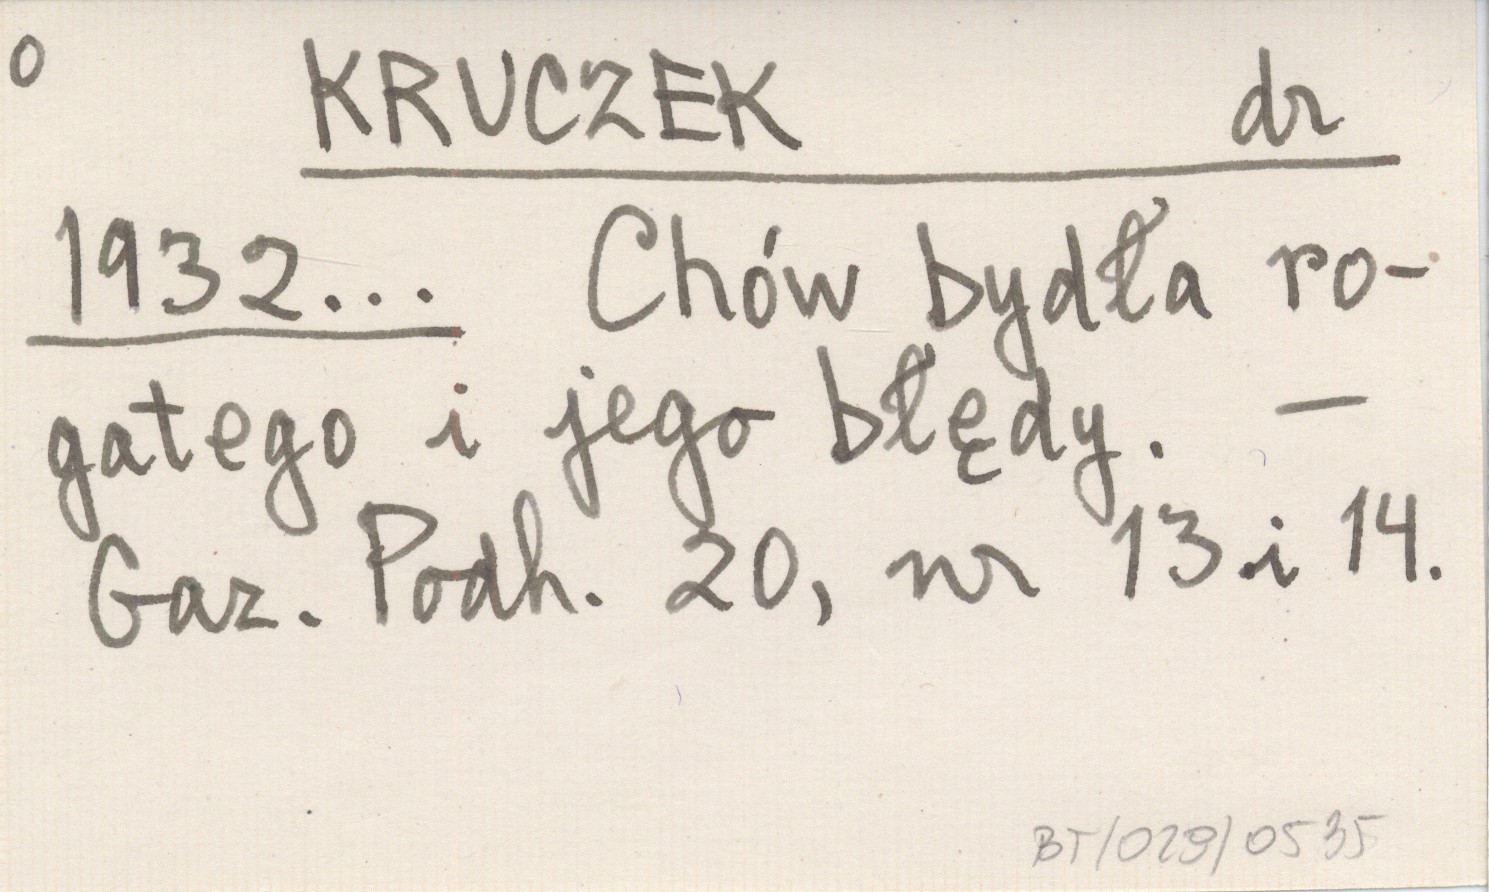 o KRUCZEK dr
1932... Chów bydła ro-
gatego i jego błędy. —
Gaz. Podh. 20, nr 13 i 14.
BT/029/0535